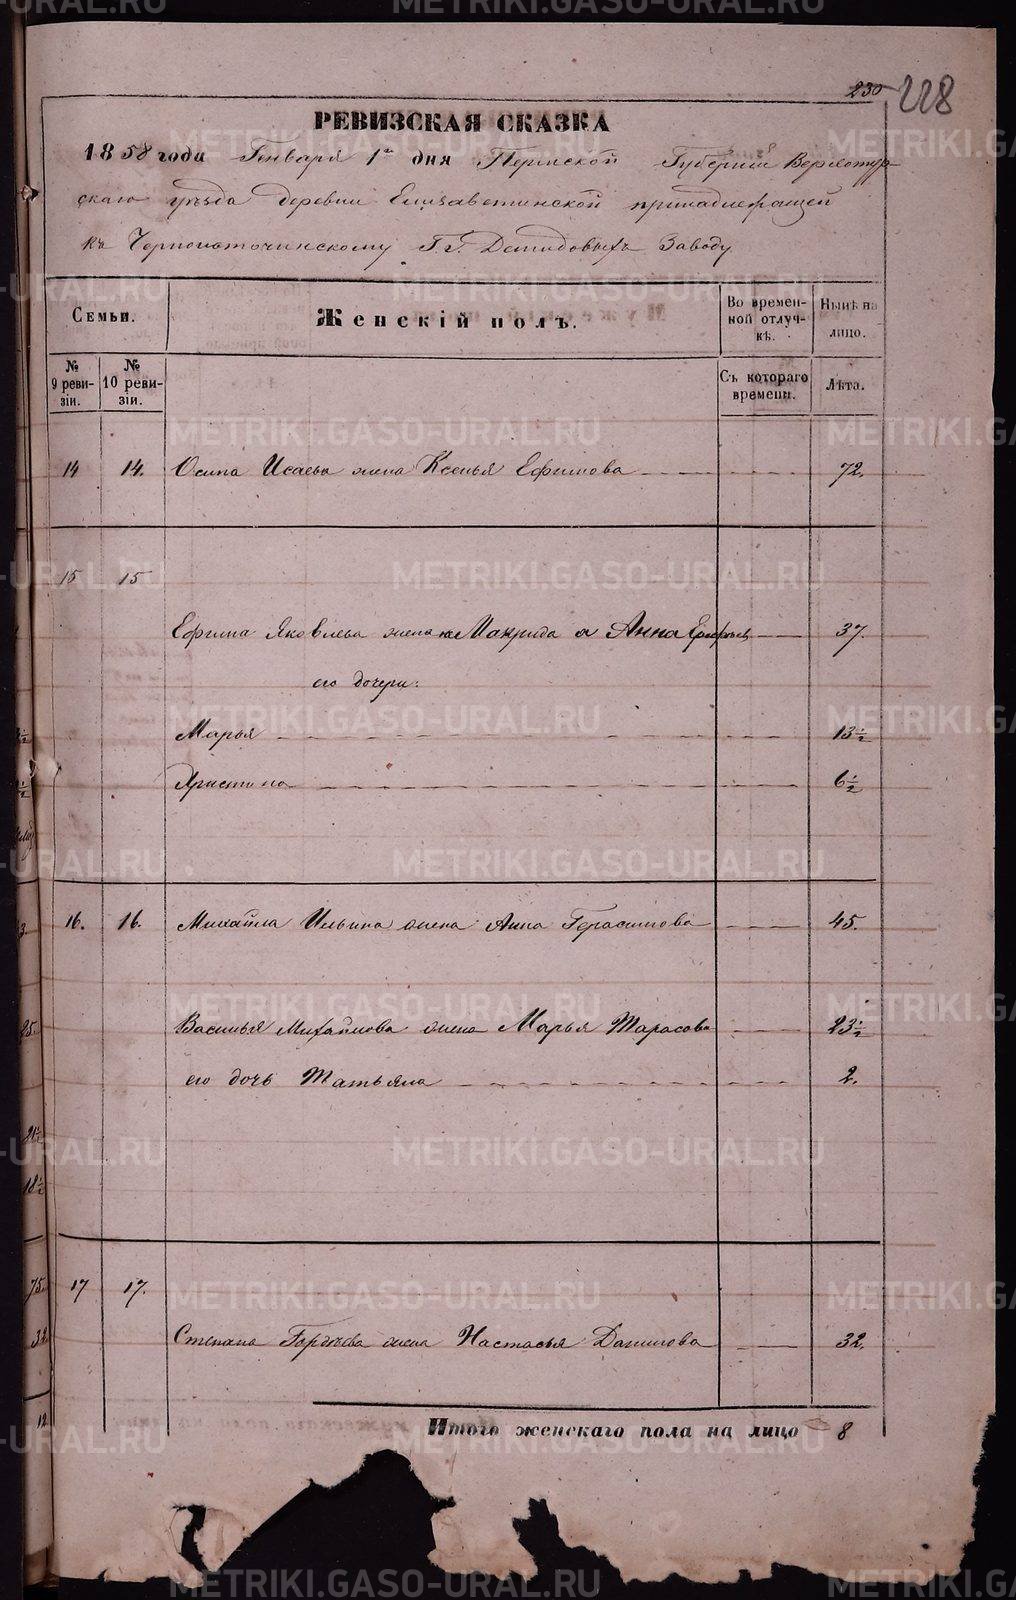 230 228
РЕВИЗСКАЯ СКАЗКА
1858 года Генваря 1го дня Пермской Губернии Верхотур-
скаго уѣзда деревни Елизаветинской принадлежащей
къ Черноисточинскому Г.г. Демидовыхъ Заводу
Семьи.
Женскій полъ.
Во времен-
ной отлуч-
кѣ.
Нынѣ на
лицо.
№
9 реви-
зіи.
№
10 реви-
зіи.
Съ котораго
времени.
Лѣта.
14 14. Осипа Исаева жена Ксенья Ефимова 72.
15 15
Ефима Яковлева жена Макрида Анна 37
его дочери:
Марья 13½
Христина 6½
16. 16. Михайла Ильина жена Анна Герасимова 45.
Василья Михайлова жена Марья Тарасова 23½
его дочь Татьяна 2.
17 17.
Степана Гордѣева жена Настасья Данилова 32.
Итого женскаго пола на лицо 8
METRIKI.GASO-URAL.RU